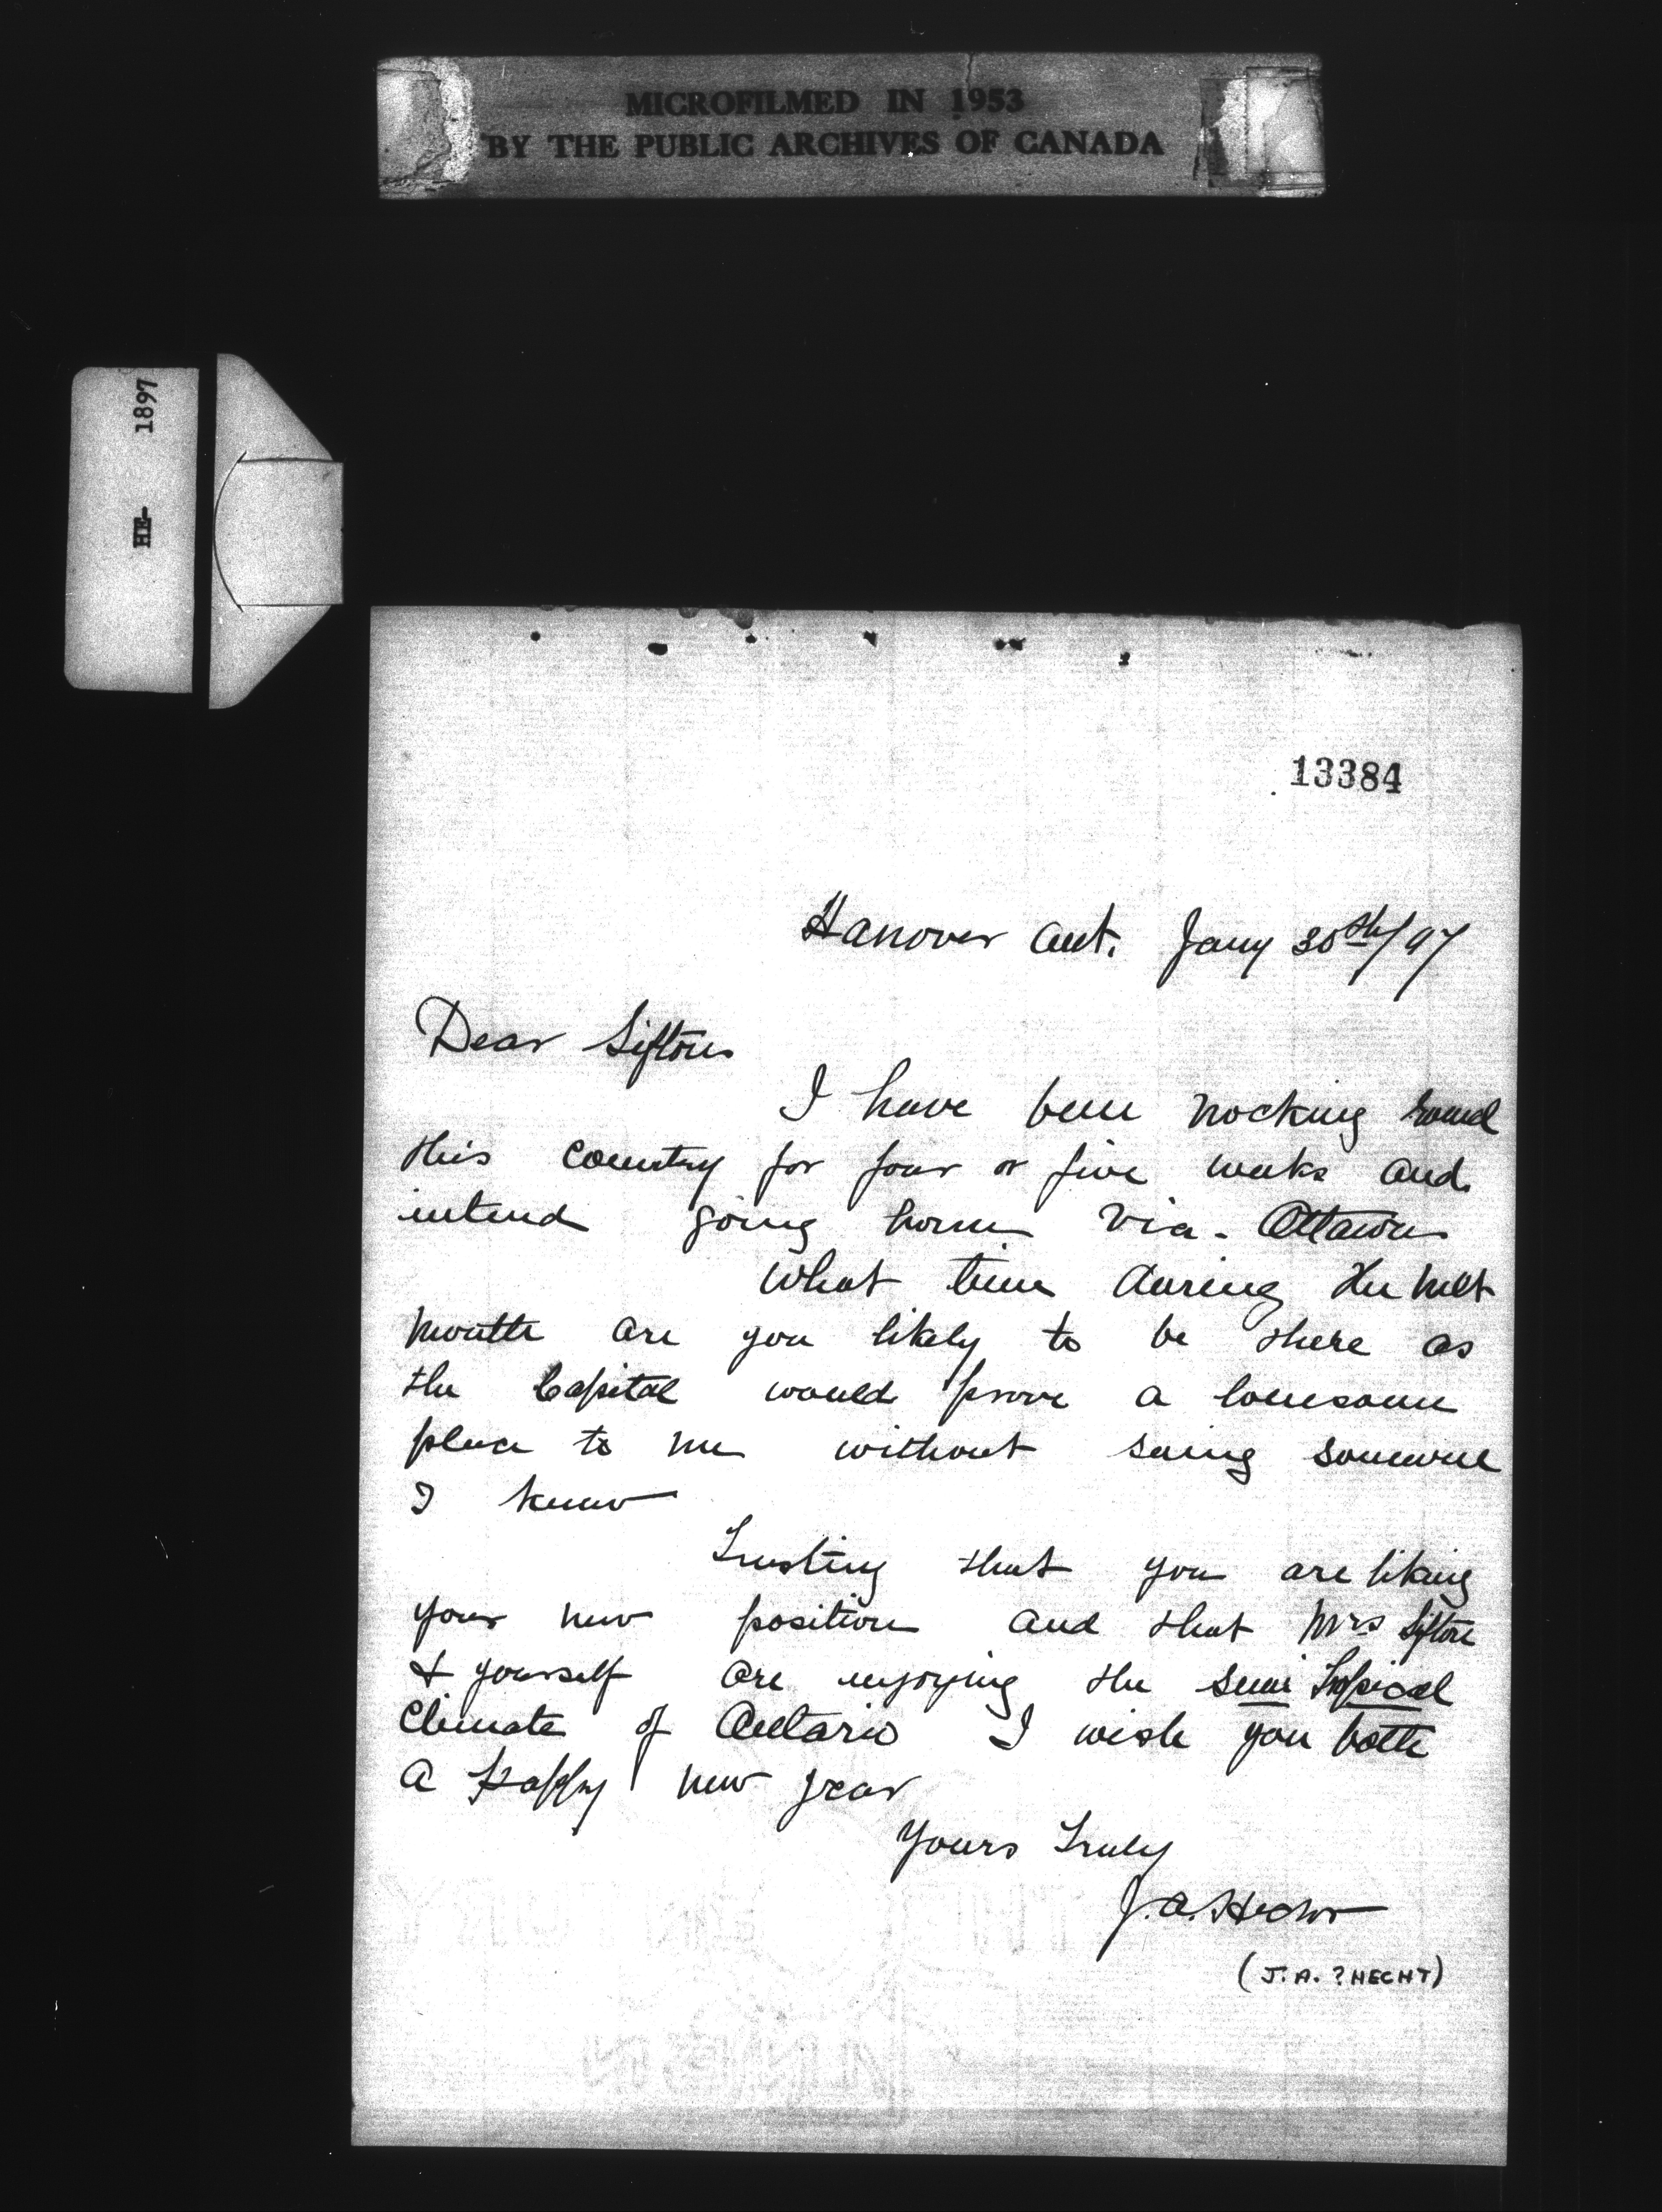 MICROFILMED IN 1953
BY THE PUBLIC ARCHIVES OF CANADA
HE- 1897
13384
Hanover Ont. Jany 30th/97
Dear Sifton
I have been nocking round
this country for four or five weeks and
intend going home via. Ottawa
What time during the next
month are you likely to be there as
the Capital would prove a lonesome
place to me without seeing someone
I know
Trusting that you are liking
your new position and that Mrs Sifton
& yourself are enjoying the semi Tropical
Climate of Ontario I wish you both
a Happy new year
Yours Truly
J.A.
(J.A. ?HECHT)